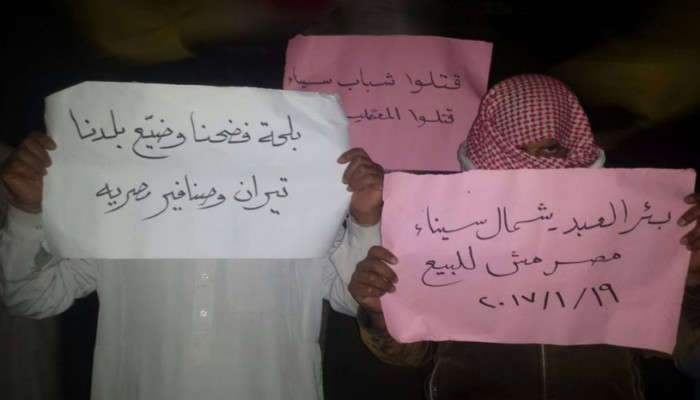 قتلوا شباب سيناء
قتلوا
بلحة فضحنا وضيّع بلدنا
تيران وصنافير مصريه
بئر العبد - شمال سيناء
مصر مش للبيع
٢٠١٧/١/١٩